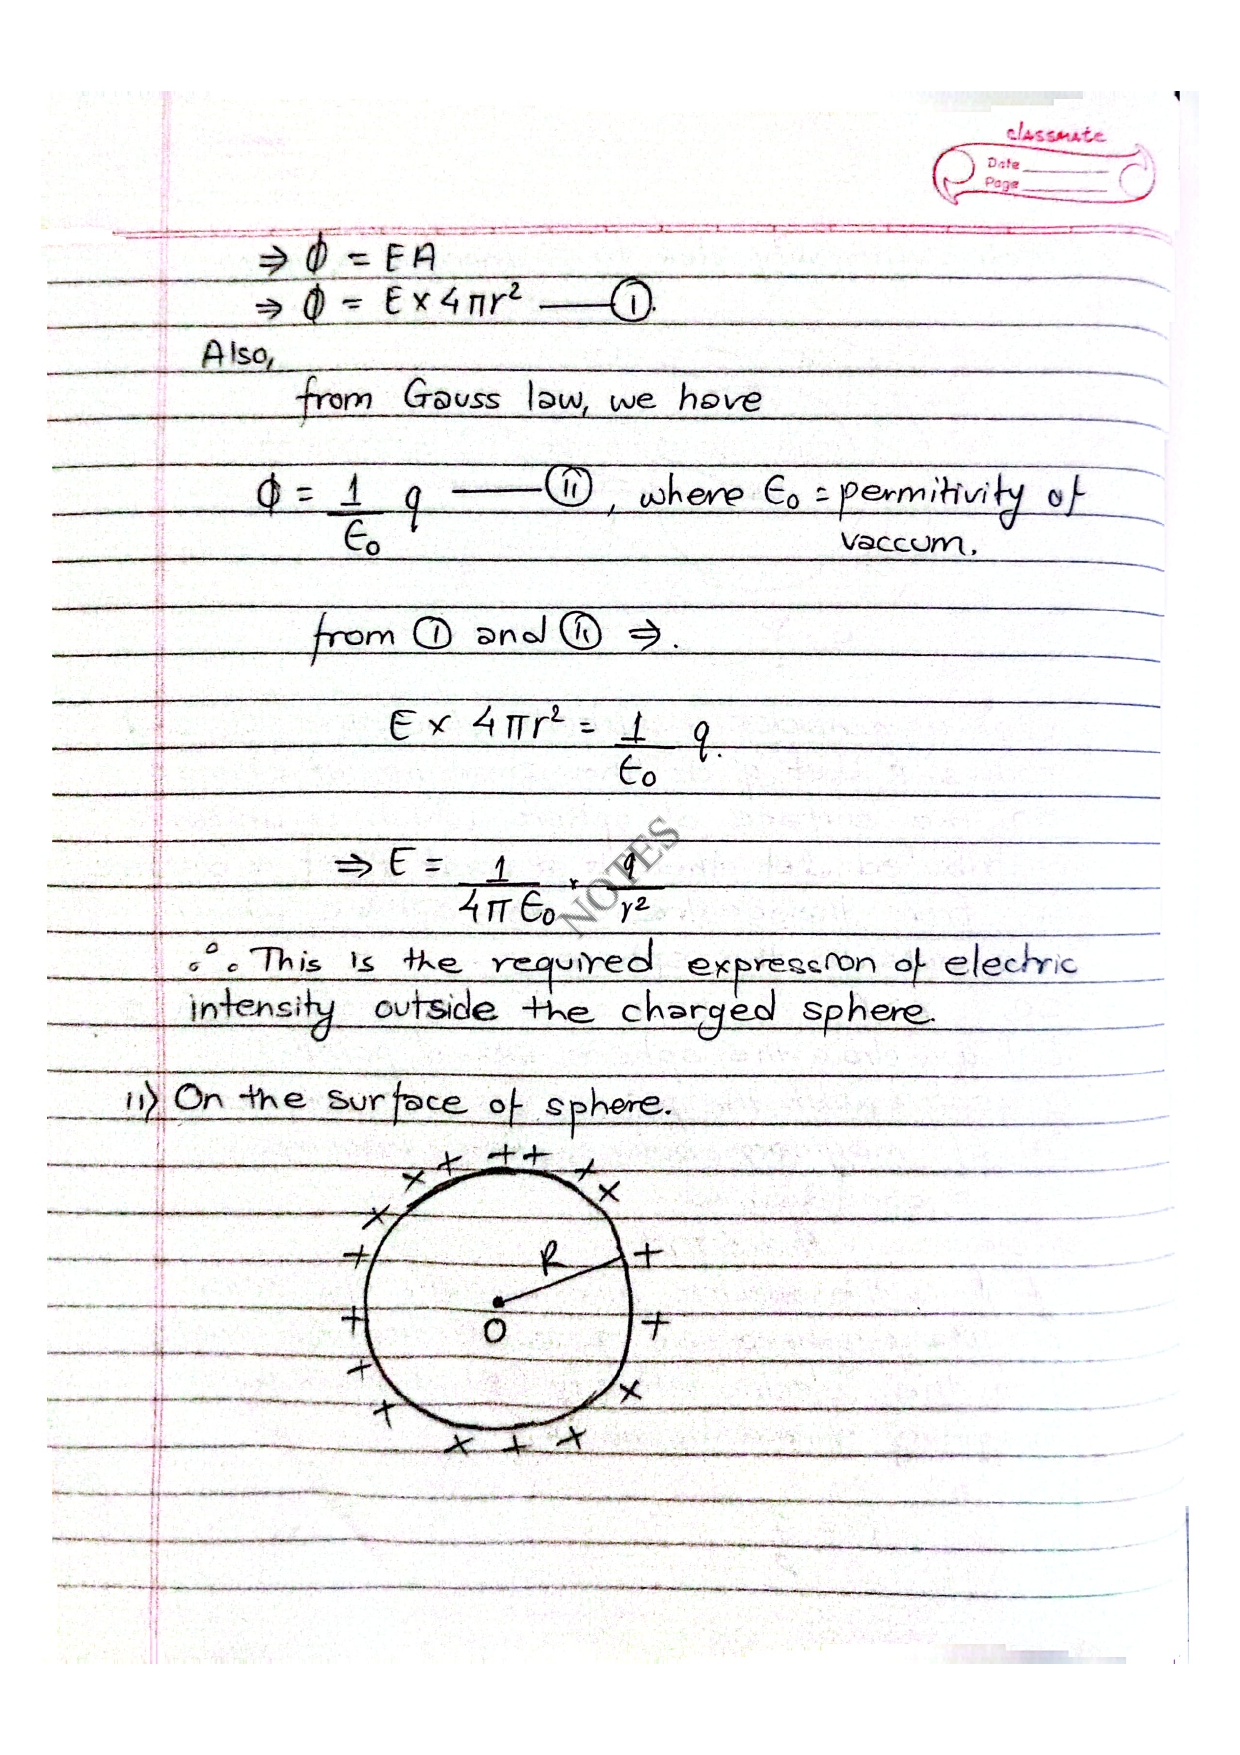 classmate
Date
Page
⇒ ϕ = EA
⇒ ϕ = E × 4πr² —— (i).
Also,
from Gauss law, we have
ϕ = 1/ϵ₀ q —— (ii), where ϵ₀ = permitivity of
vaccum.
from (i) and (ii) ⇒.
E × 4πr² = 1/ϵ₀ q.
⇒ E = 1/4πϵ₀ × q/r²
NOTES
∴ This is the required expression of electric
intensity outside the charged sphere.
ii) On the surface of sphere.
+ + +
× × ×
× +
+ R
+ O +
+ ×
+
× + ×